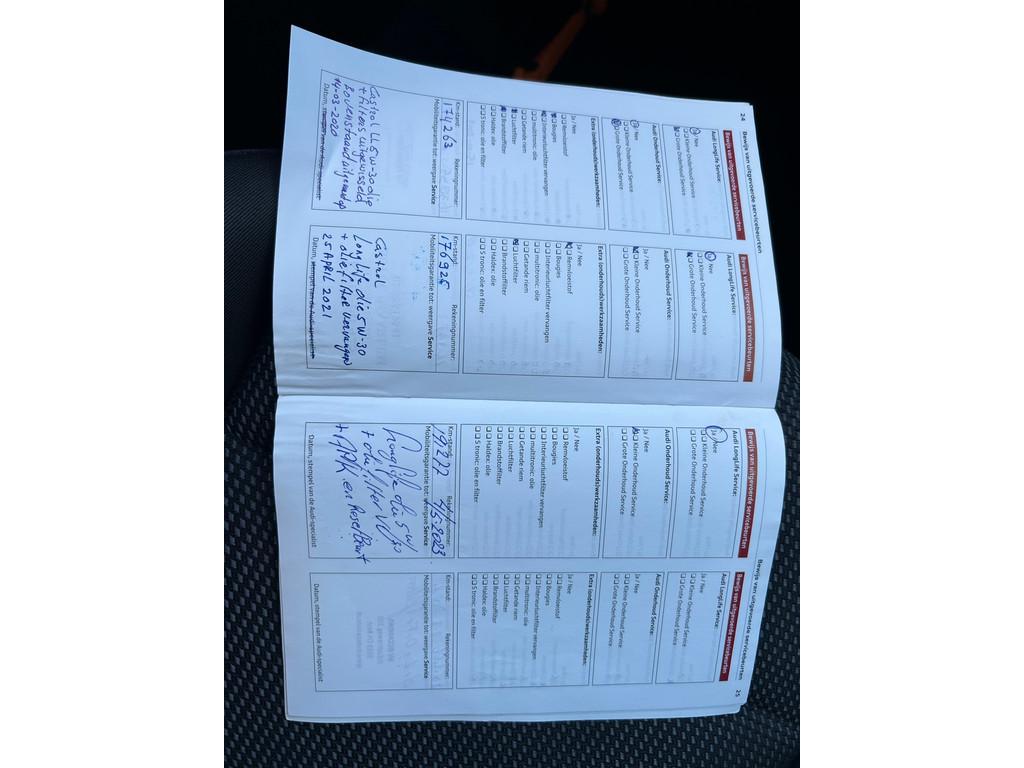 24 Bewijs van uitgevoerde servicebeurten
Bewijs van uitgevoerde servicebeurten
Audi LongLife Service:
Ja / Nee
Kleine Onderhoud Service
Grote Onderhoud Service
Audi Onderhoud Service:
Ja / Nee
Kleine Onderhoud Service
Grote Onderhoud Service
Extra (onderhouds)werkzaamheden:
Ja / Nee
Remvloeistof
Bougies
Interieurluchtfilter vervangen
multitronic: olie
Getande riem
Luchtfilter
Brandstoffilter
Haldex: olie
S tronic: olie en filter
Km-stand: Rekeningnummer:
174263
Mobiliteitsgarantie tot: weergave Service
Castrol LL 5W-30 olie
+ filters uitgewisseld
Bovenstaand uitgevoerd op
14-03-2020
Datum, stempel van de Audi-specialist
Bewijs van uitgevoerde servicebeurten
Audi LongLife Service:
Ja / Nee
Kleine Onderhoud Service
Grote Onderhoud Service
Audi Onderhoud Service:
Ja / Nee
Kleine Onderhoud Service
Grote Onderhoud Service
Extra (onderhouds)werkzaamheden:
Ja / Nee
Remvloeistof
Bougies
Interieurluchtfilter vervangen
multitronic: olie
Getande riem
Luchtfilter
Brandstoffilter
Haldex: olie
S tronic: olie en filter
Km-stand: Rekeningnummer:
176925
Mobiliteitsgarantie tot: weergave Service
Castrol
Longlife olie 5W-30
+ oliefilter vervangen
25 APRIL 2021
Datum, stempel van de Audi-specialist
Bewijs van uitgevoerde servicebeurten 25
Bewijs van uitgevoerde servicebeurten
Audi LongLife Service:
Ja / Nee
Kleine Onderhoud Service
Grote Onderhoud Service
Audi Onderhoud Service:
Ja / Nee
Kleine Onderhoud Service
Grote Onderhoud Service
Extra (onderhouds)werkzaamheden:
Ja / Nee
Remvloeistof
Bougies
Interieurluchtfilter vervangen
multitronic: olie
Getande riem
Luchtfilter
Brandstoffilter
Haldex: olie
S tronic: olie en filter
Km-stand: Rekeningnummer:
Mobiliteitsgarantie tot: weergave Service
Longlife olie 5W
+ oliefilter
+ APK en
Datum, stempel van de Audi-specialist
Bewijs van uitgevoerde servicebeurten
Audi LongLife Service:
Ja / Nee
Kleine Onderhoud Service
Grote Onderhoud Service
Audi Onderhoud Service:
Ja / Nee
Kleine Onderhoud Service
Grote Onderhoud Service
Extra (onderhouds)werkzaamheden:
Ja / Nee
Remvloeistof
Bougies
Interieurluchtfilter vervangen
multitronic: olie
Getande riem
Luchtfilter
Brandstoffilter
Haldex: olie
S tronic: olie en filter
Km-stand: Rekeningnummer:
Mobiliteitsgarantie tot: weergave Service
Datum, stempel van de Audi-specialist